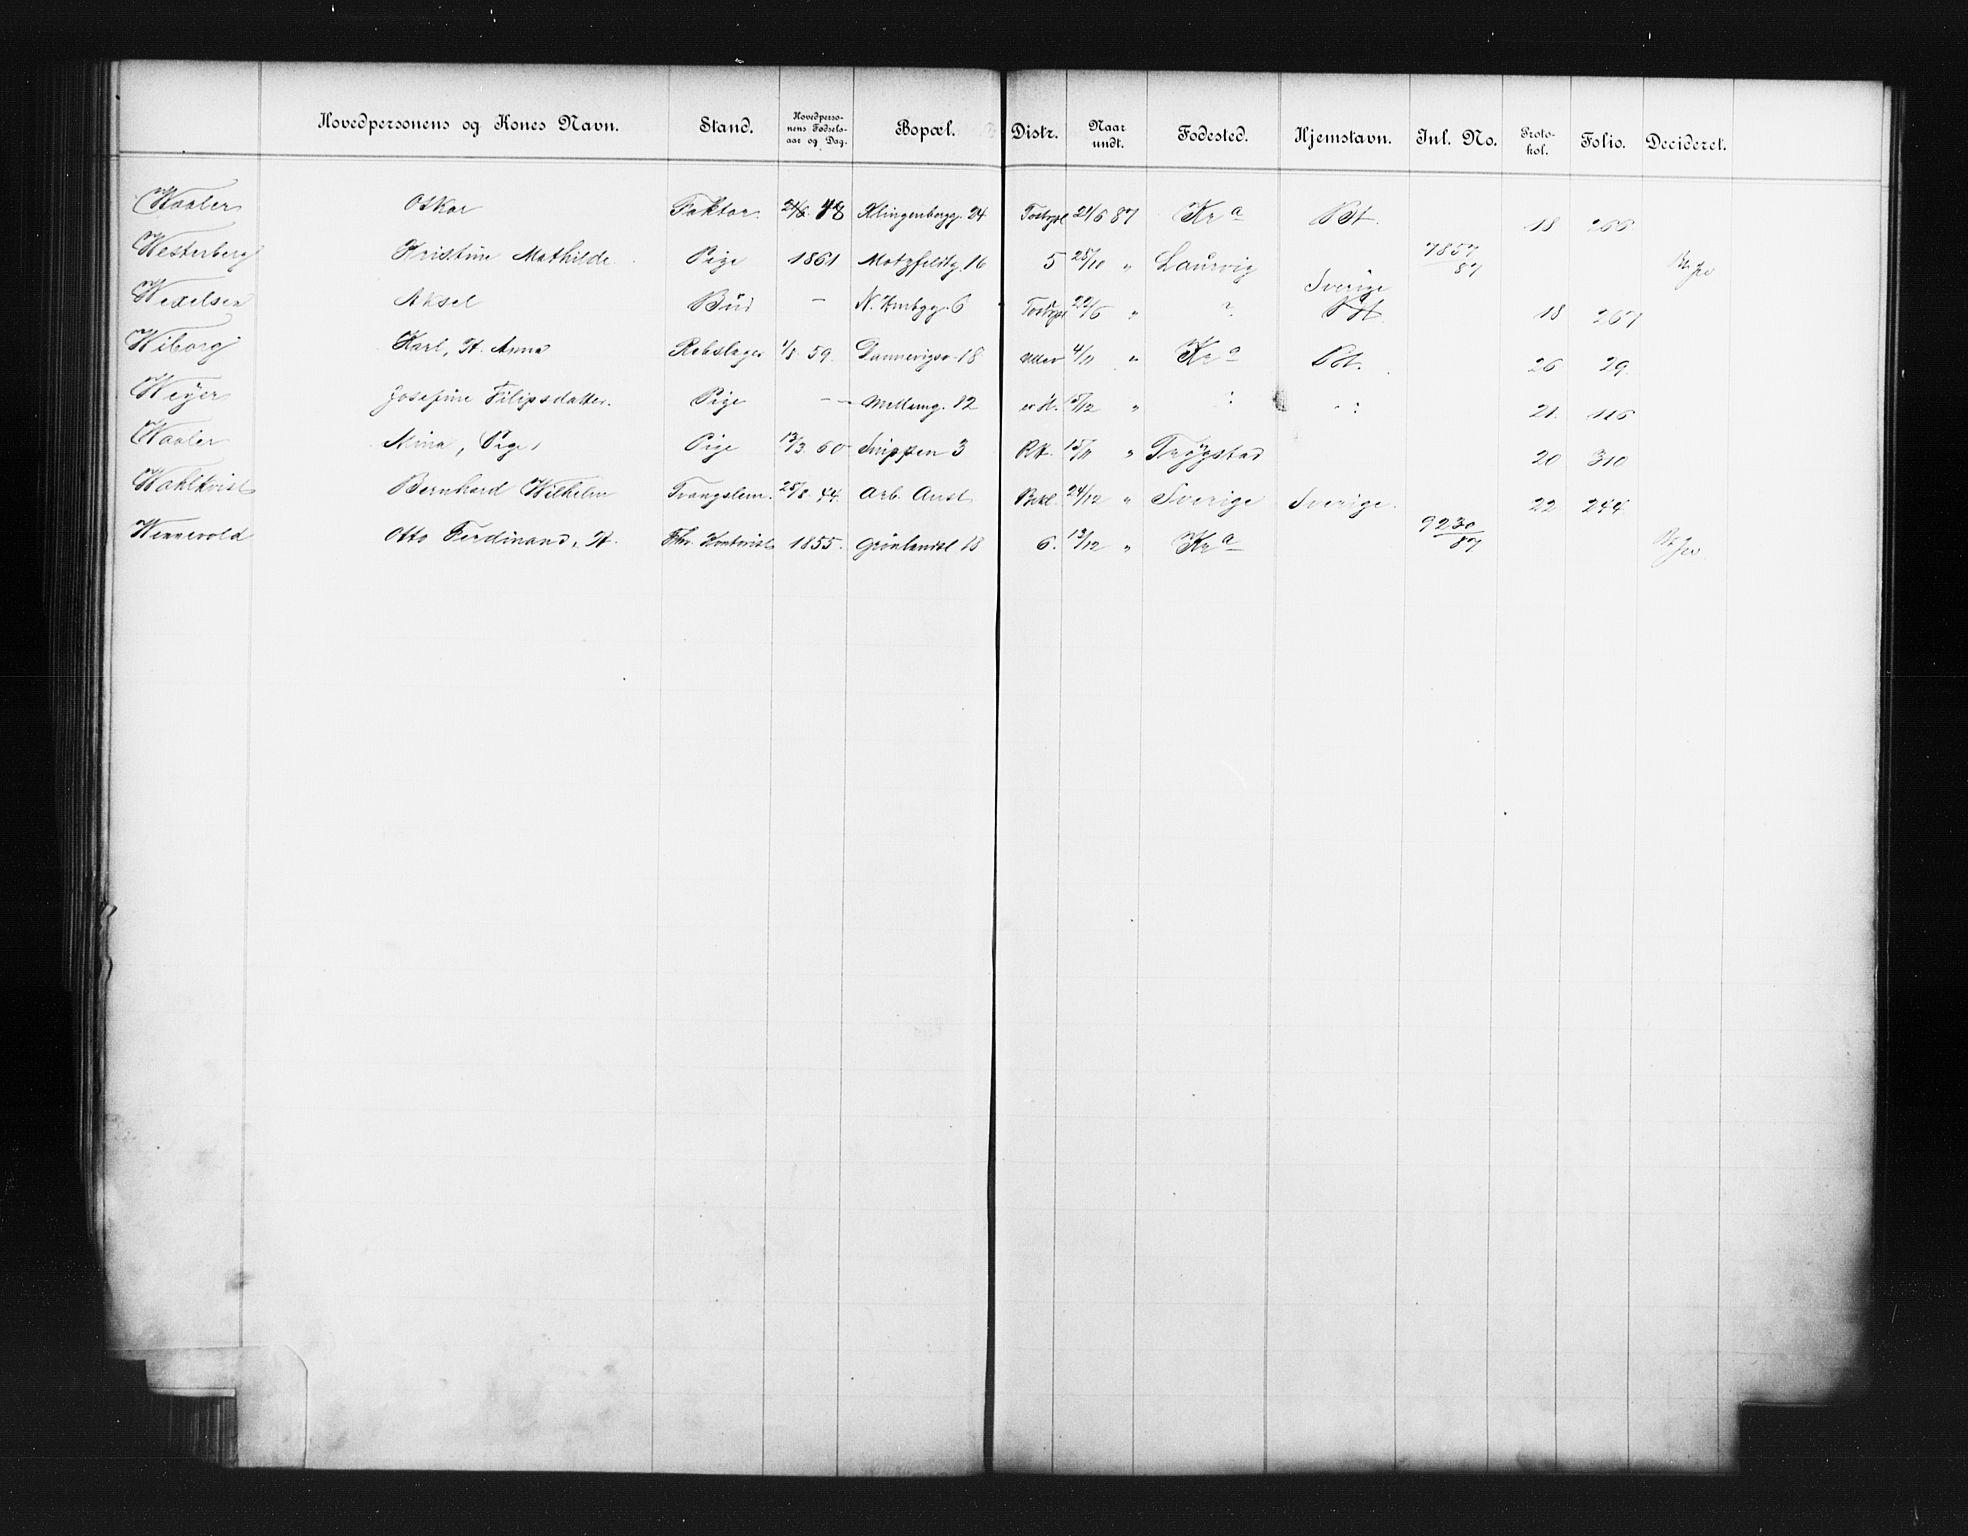 Hovedpersonens og Kones Navn. Stand. Hovedpersonens Fødselsaar og Dag. Bopæl. Distr. Naar undt. Fødested. Hjemstavn. Inl. No. Protokol. Folio. Decideret.
Waaler Oskar Faktor 24/6. 48 Klingenbergg. 24 21/6 87 Kra Bt. 18 266
Westerberg Kristine Mathilde Pige 1861 Motzfeldtg. 16 5 28/10 " Laurvig Sverige 7857/87
Wexelsen Aksel Bud - 6 22/6 " ? 18 267
Wiborg Karl, H. Anna Rebslager 1/8 59. Dannevigsv. 18 4/11 " Kra Bt. 26 29.
Weyer Josefine Filipsdatter. Pige - - Mellemg. 12 15/12 " : - : 21. 116
Waaler Mina, Pige, Pige 13/3. 60 Snippen 3 15/11 " Trøgstad 20 310
Wahlkvist Bernhard Wilhelm Tvangslem. 28/8. 44. Arb. Anst 24/12 " Sverige Sverige. 22 244
Wennevold Otto Ferdinand, H. Fhv. Kontorist 1855. Grønlandsl 18 6. 13/12 " Kra 9230/87